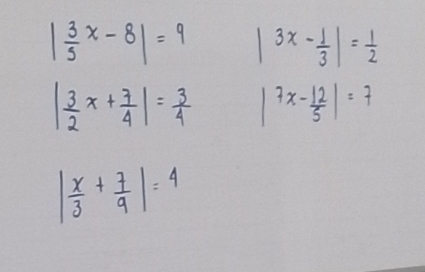 |3/5 x - 8| = 9
|3x - 1/3| = 1/2
|3/2 x + 7/4| = 3/4
|7x - 12/5| = 7
|x/3 + 7/9| = 4